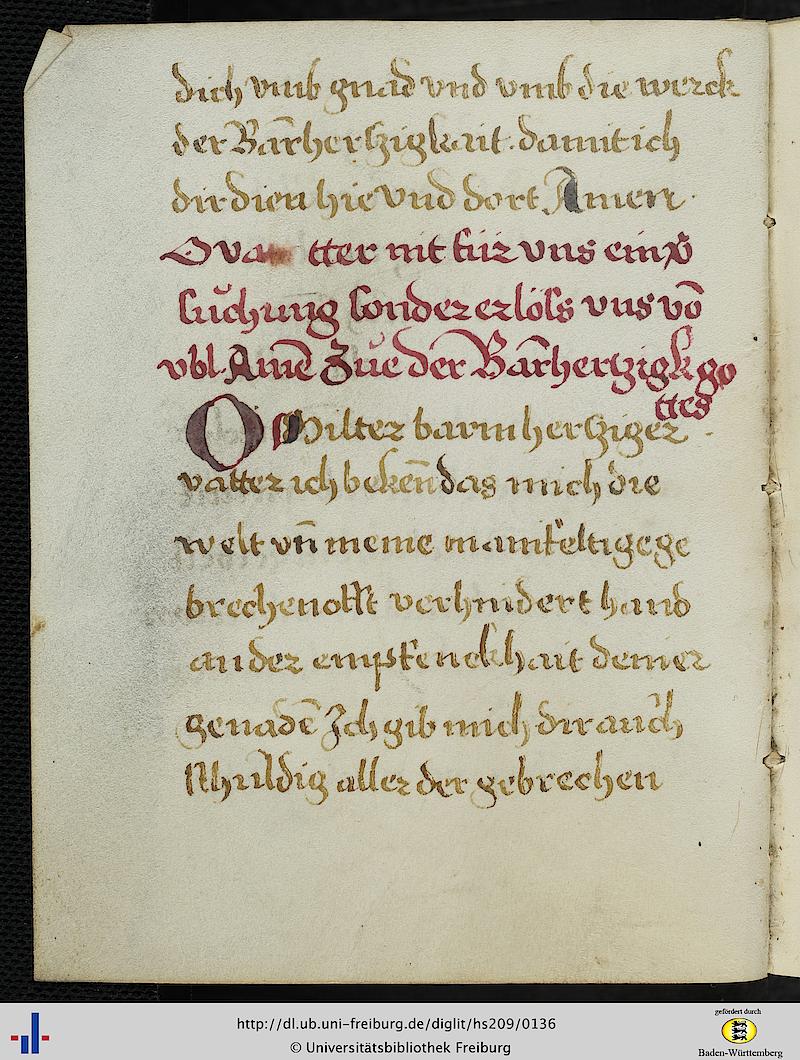 dich vmb gnad vnd vmb die werck
der Bārhertzigkait. damit ich
dir dien hie vnd dort Amen.
O vatter nit für vns ein
suͦchung sonder erlöss vns vō
vbl. Amē Zuͤ der Bārhertzigk go
ttes
O Milter barmhertziger
vatter ich bekeñ das mich die
welt vñ meine manifeltig ge
brechen offt verhindert hand
an der empfencklhait deiner
genadē Ich gib mich dir auch
schuldig aller der gebrechen
http://dl.ub.uni-freiburg.de/diglit/hs209/0136
© Universitätsbibliothek Freiburg
gefördert durch
Baden-Württemberg